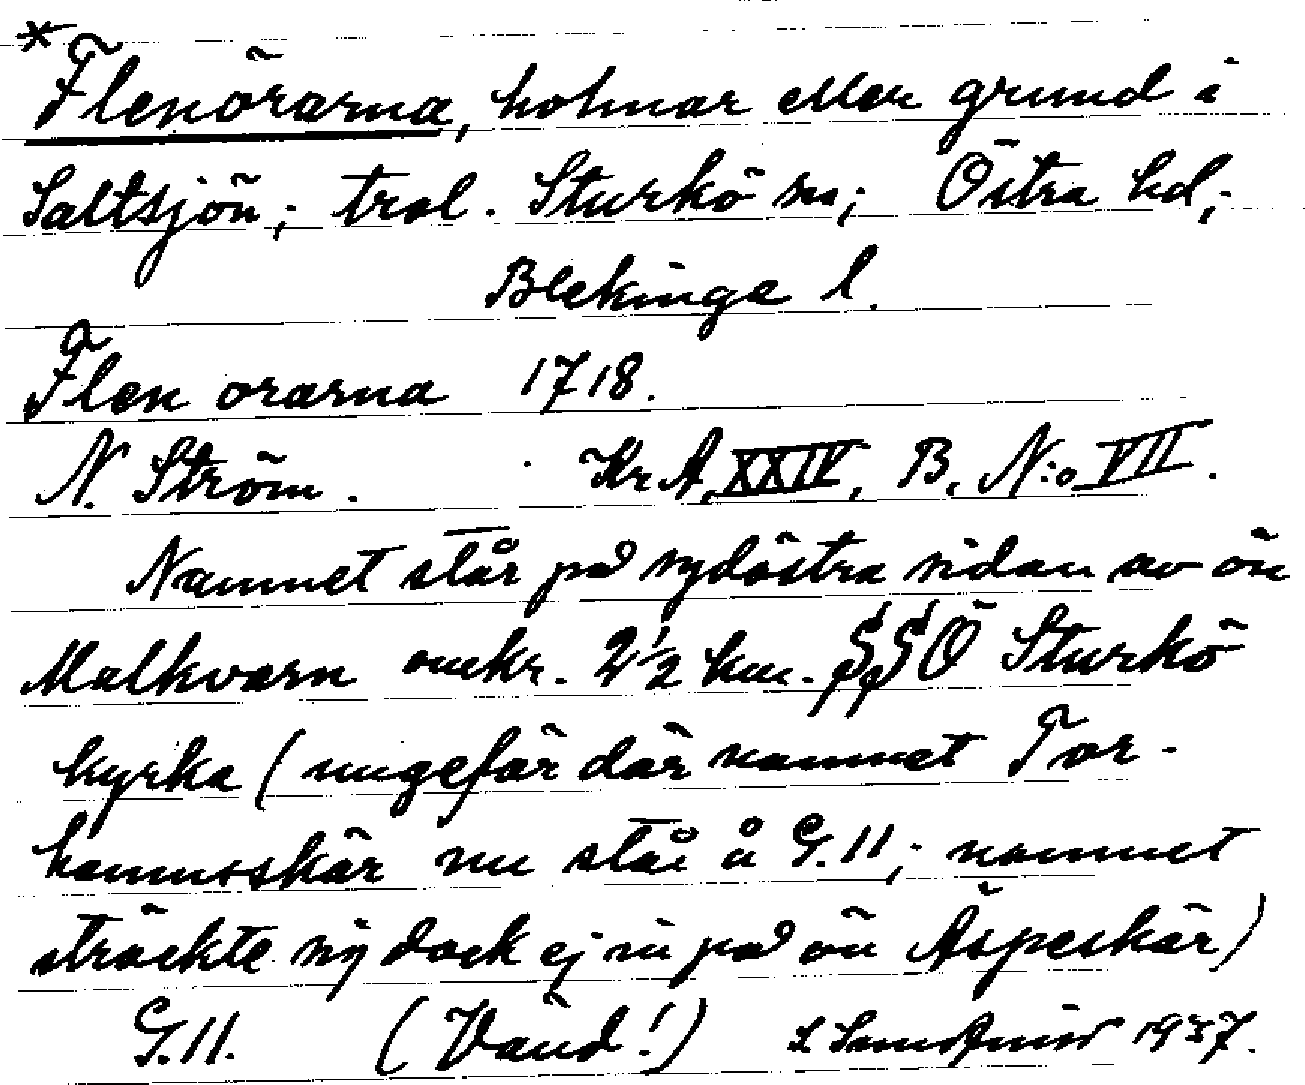 *Flenörarna, holmar eller grund i
Saltsjön; trol. Sturkö sn; Östra hd;
Blekinge l.
Flen orarna 1718.
N. Ström. Kr A, XXIV, B, N:o VII.
Namnet står på sydöstra sidan av ön
Malkvarn omkr. 2½ km. SSÖ Sturkö
kyrka (ungefär där namnet Tor-
hamnsskär nu står å G.11; namnet
sträckte sig dock ej in på ön Äspeskär)
G.11. (Vänd!) 1937.